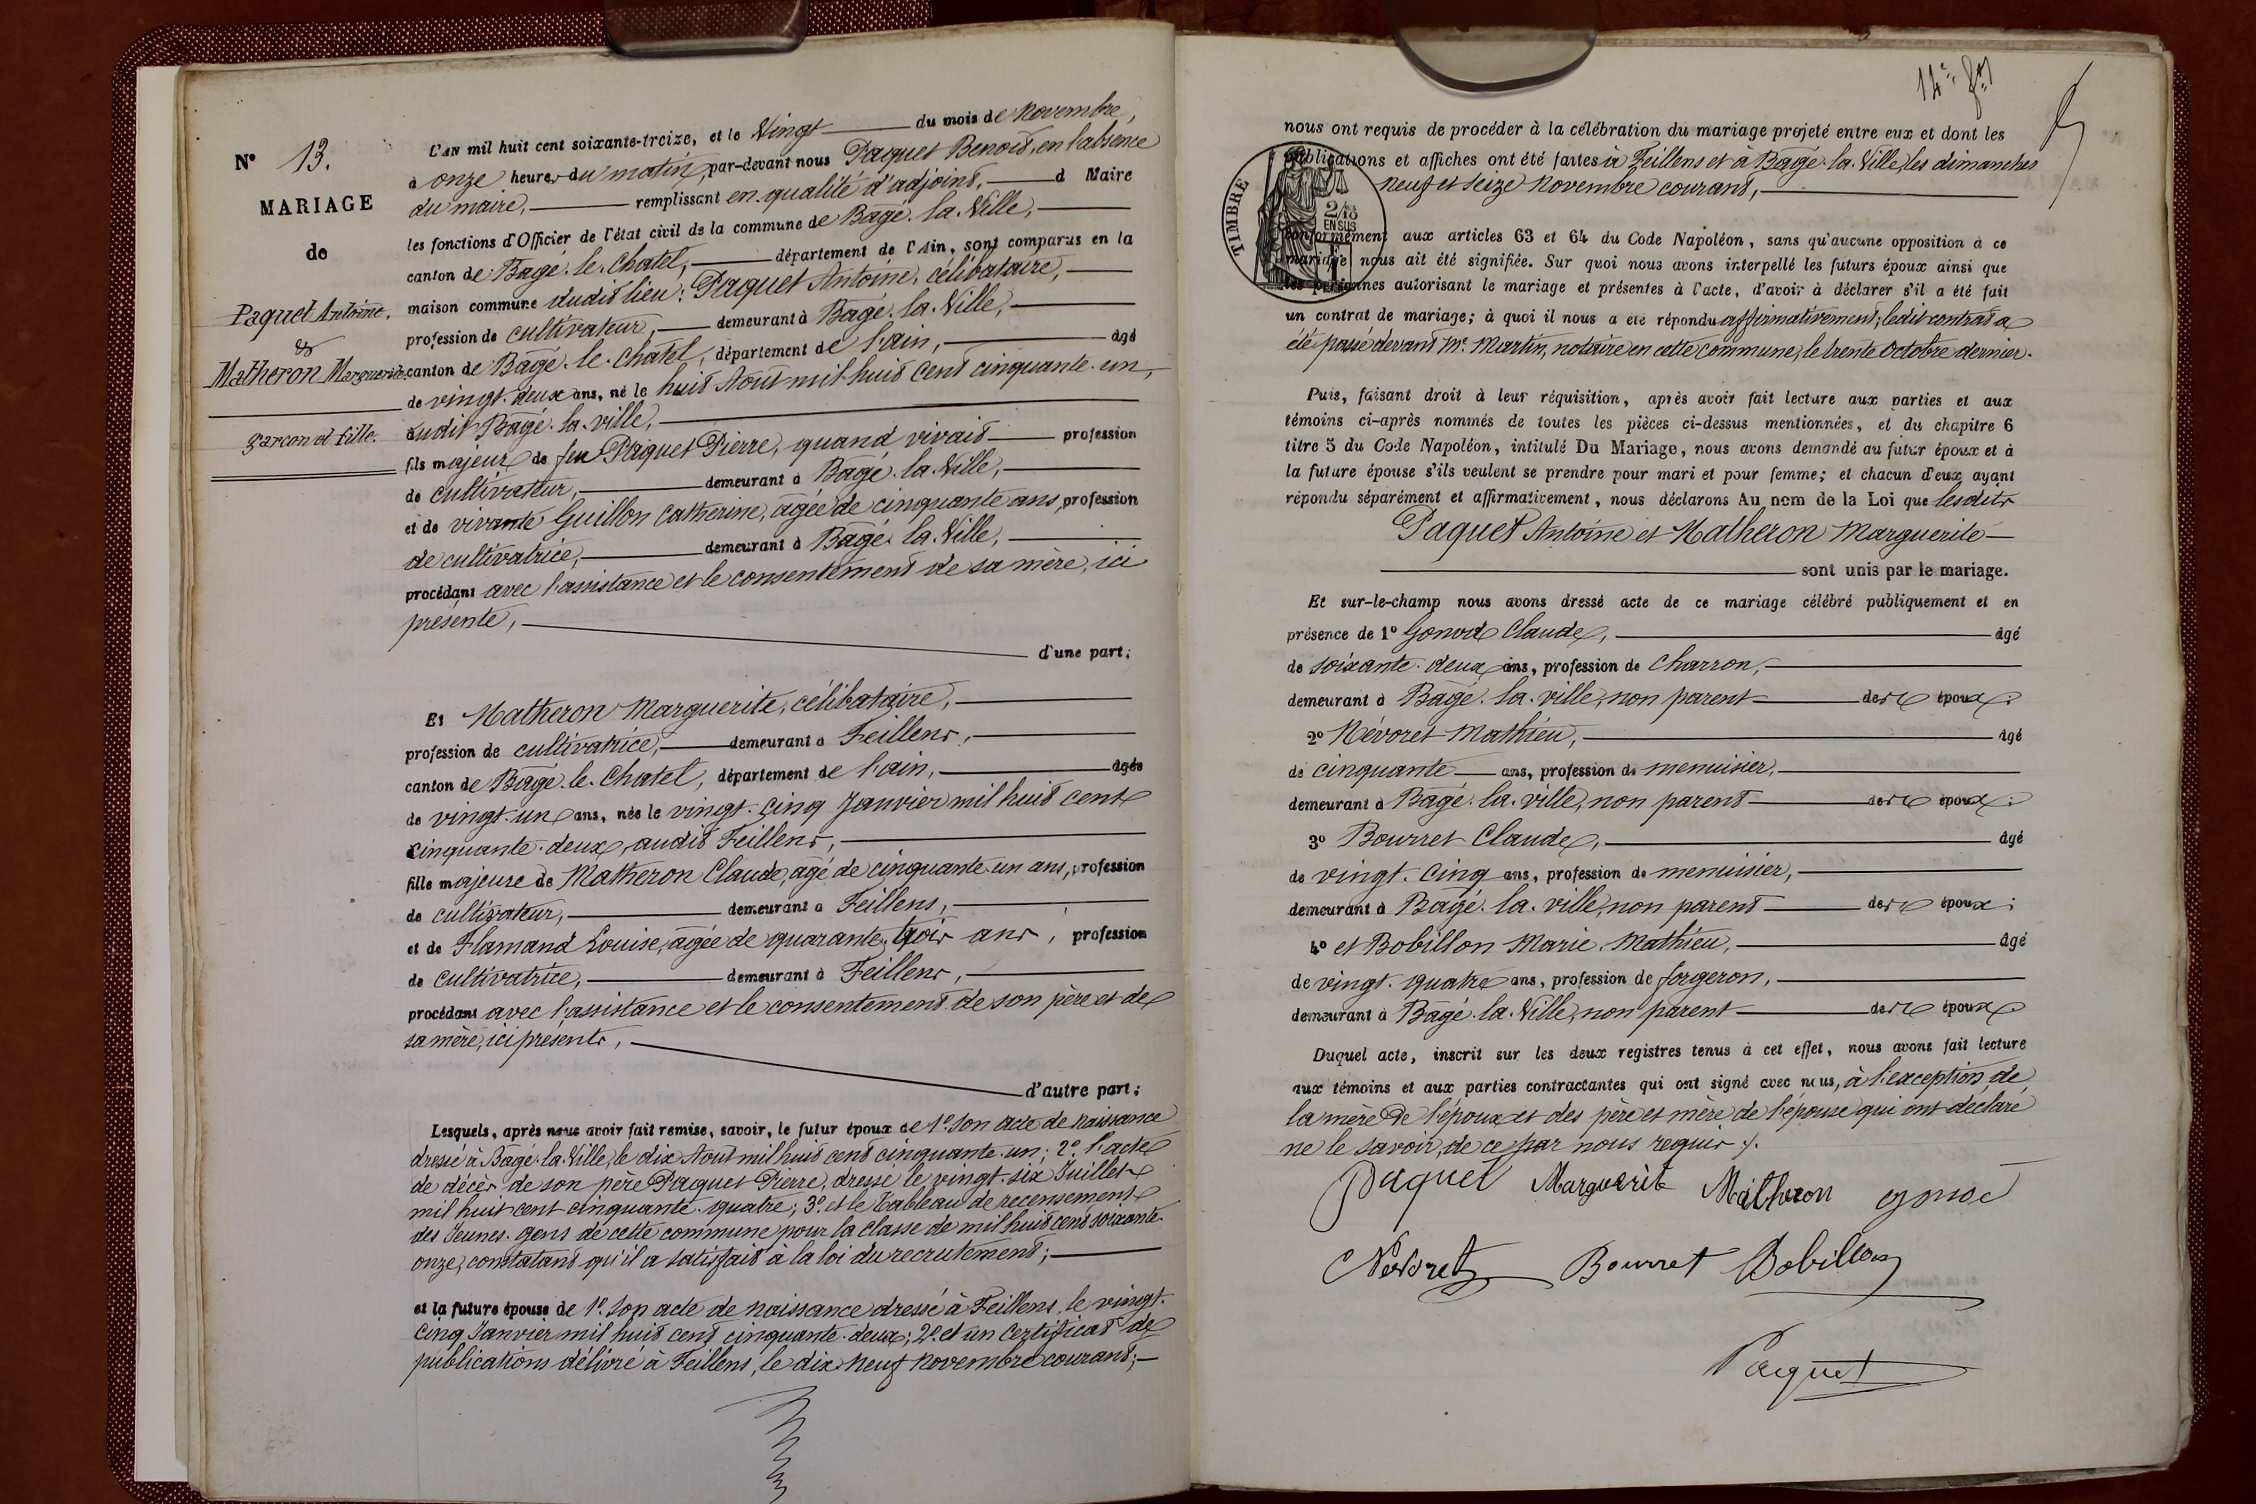 N° 13.
MARIAGE
de
Paquet Antoine,
&
Matheron Marguerite.
garçon et fille.
L'AN mil huit cent soixante-treize, et le Vingt du mois de Novembre,
à onze heures du matin, par-devant nous Paquet Benoit, en l'absence
du maire, remplissant en qualité d'adjoint, d Maire
les fonctions d'Officier de l'état civil de la commune de Bagé-la-Ville,
canton de Bagé-le-Chatel, département de l'Ain, sont comparus en la
maison commune dudit lieu: Paquet Antoine, célibataire,
profession de cultivateur, demeurant à Bagé-la-Ville,
canton de Bagé-le-Chatel, département de l'ain, âgé
de vingt-deux ans, né le huit Aout mil huit cent cinquante-un,
audit Bagé-la-ville,
fils majeur de feu Paquet Pierre, quand vivait profession
de cultivateur, demeurant à Bagé-la-Ville,
et de vivante Guillon Catherine, agée de cinquante ans, profession
de cultivatrice, demeurant à Bagé-la-Ville,
procédant avec l'assistance et le consentement de sa mère, ici
présente,
d'une part;
Et Matheron Marguerite, célibataire,
profession de cultivatrice, demeurant à Feillens,
canton de Bagé-le-Chatel, département de l'ain, âgée
de vingt-un ans, née le vingt-cinq Janvier mil huit cent
cinquante-deux, audit Feillens,
fille majeure de Matheron Claude, agé de cinquante-un ans, profession
de cultivateur, demeurant à Feillens,
et de Flamand Louise, agée de quarante-trois ans, profession
de cultivatrice, demeurant à Feillens,
procédant avec l'assistance et le consentement de son père et de
sa mère, ici présents,
d'autre part;
Lesquels, après nous avoir fait remise, savoir, le futur époux de 1° son acte de naissance
dressé à Bagé-la-Ville, le dix Aout mil huit cent cinquante-un; 2° l'acte
de décès de son père Paquet Pierre, dressé le vingt-six Juillet
mil huit cent cinquante-quatre; 3° et le Tableau de recensement
des Jeunes-gens de cette commune pour la classe de mil huit cent soixante-
onze, constatant qu'il a satisfait à la loi du recrutement;
et la future épouse de 1° son acte de naissance dressé à Feillens, le vingt-
cinq Janvier mil huit cent cinquante-deux; 2° et un Certificat de
publications délivré à Feillens, le dix neuf novembre courant;
nous ont requis de procéder à la célébration du mariage projeté entre eux et dont les
publications et affiches ont été faites à Feillens et à Bagé-la-Ville, les dimanches
neuf et seize novembre courant,
TIMBRE
2/10
EN SUS
conformément aux articles 63 et 64 du Code Napoléon, sans qu'aucune opposition à ce
mariage nous ait été signifiée. Sur quoi nous avons interpellé les futurs époux ainsi que
les personnes autorisant le mariage et présentes à l'acte, d'avoir à déclarer s'il a été fait
un contrat de mariage; à quoi il nous a été répondu affirmativement; ledit contrat a
été passé devant Me. Martin, notaire en cette commune, le trente Octobre dernier.
Puis, faisant droit à leur réquisition, après avoir fait lecture aux parties et aux
témoins ci-après nommés de toutes les pièces ci-dessus mentionnées, et du chapitre 6
titre 5 du Code Napoléon, intitulé Du Mariage, nous avons demandé au futur époux et à
la future épouse s'ils veulent se prendre pour mari et pour femme; et chacun d'eux ayant
répondu séparément et affirmativement, nous déclarons Au nom de la Loi que lesdits
Paquet Antoine et Matheron Marguerite
sont unis par le mariage.
Et sur-le-champ nous avons dressé acte de ce mariage célébré publiquement et en
présence de 1° Gonod Claude, âgé
de soixante-deux ans, profession de Charron,
demeurant à Bagé-la-ville, non parent des époux;
2° Névoret Mathieu, âgé
de cinquante ans, profession de menuisier,
demeurant à Bagé-la-ville, non parent des époux;
3° Bourret Claude, âgé
de vingt-cinq ans, profession de menuisier,
demeurant à Bagé-la-ville, non parent des époux;
4° et Bobillon Marie-Mathieu, âgé
de vingt-quatre ans, profession de forgeron,
demeurant à Bagé-la-Ville, non parent des époux
Duquel acte, inscrit sur les deux registres tenus à cet effet, nous avons fait lecture
aux témoins et aux parties contractantes qui ont signé avec nous, à l'exception de
la mère de l'époux et des père et mère de l'épouse qui ont déclaré
ne le savoir, de ce par nous requis./.
Paquet Marguerite Matheron gonod
Nevoret Bourret Bobillon
Paquet